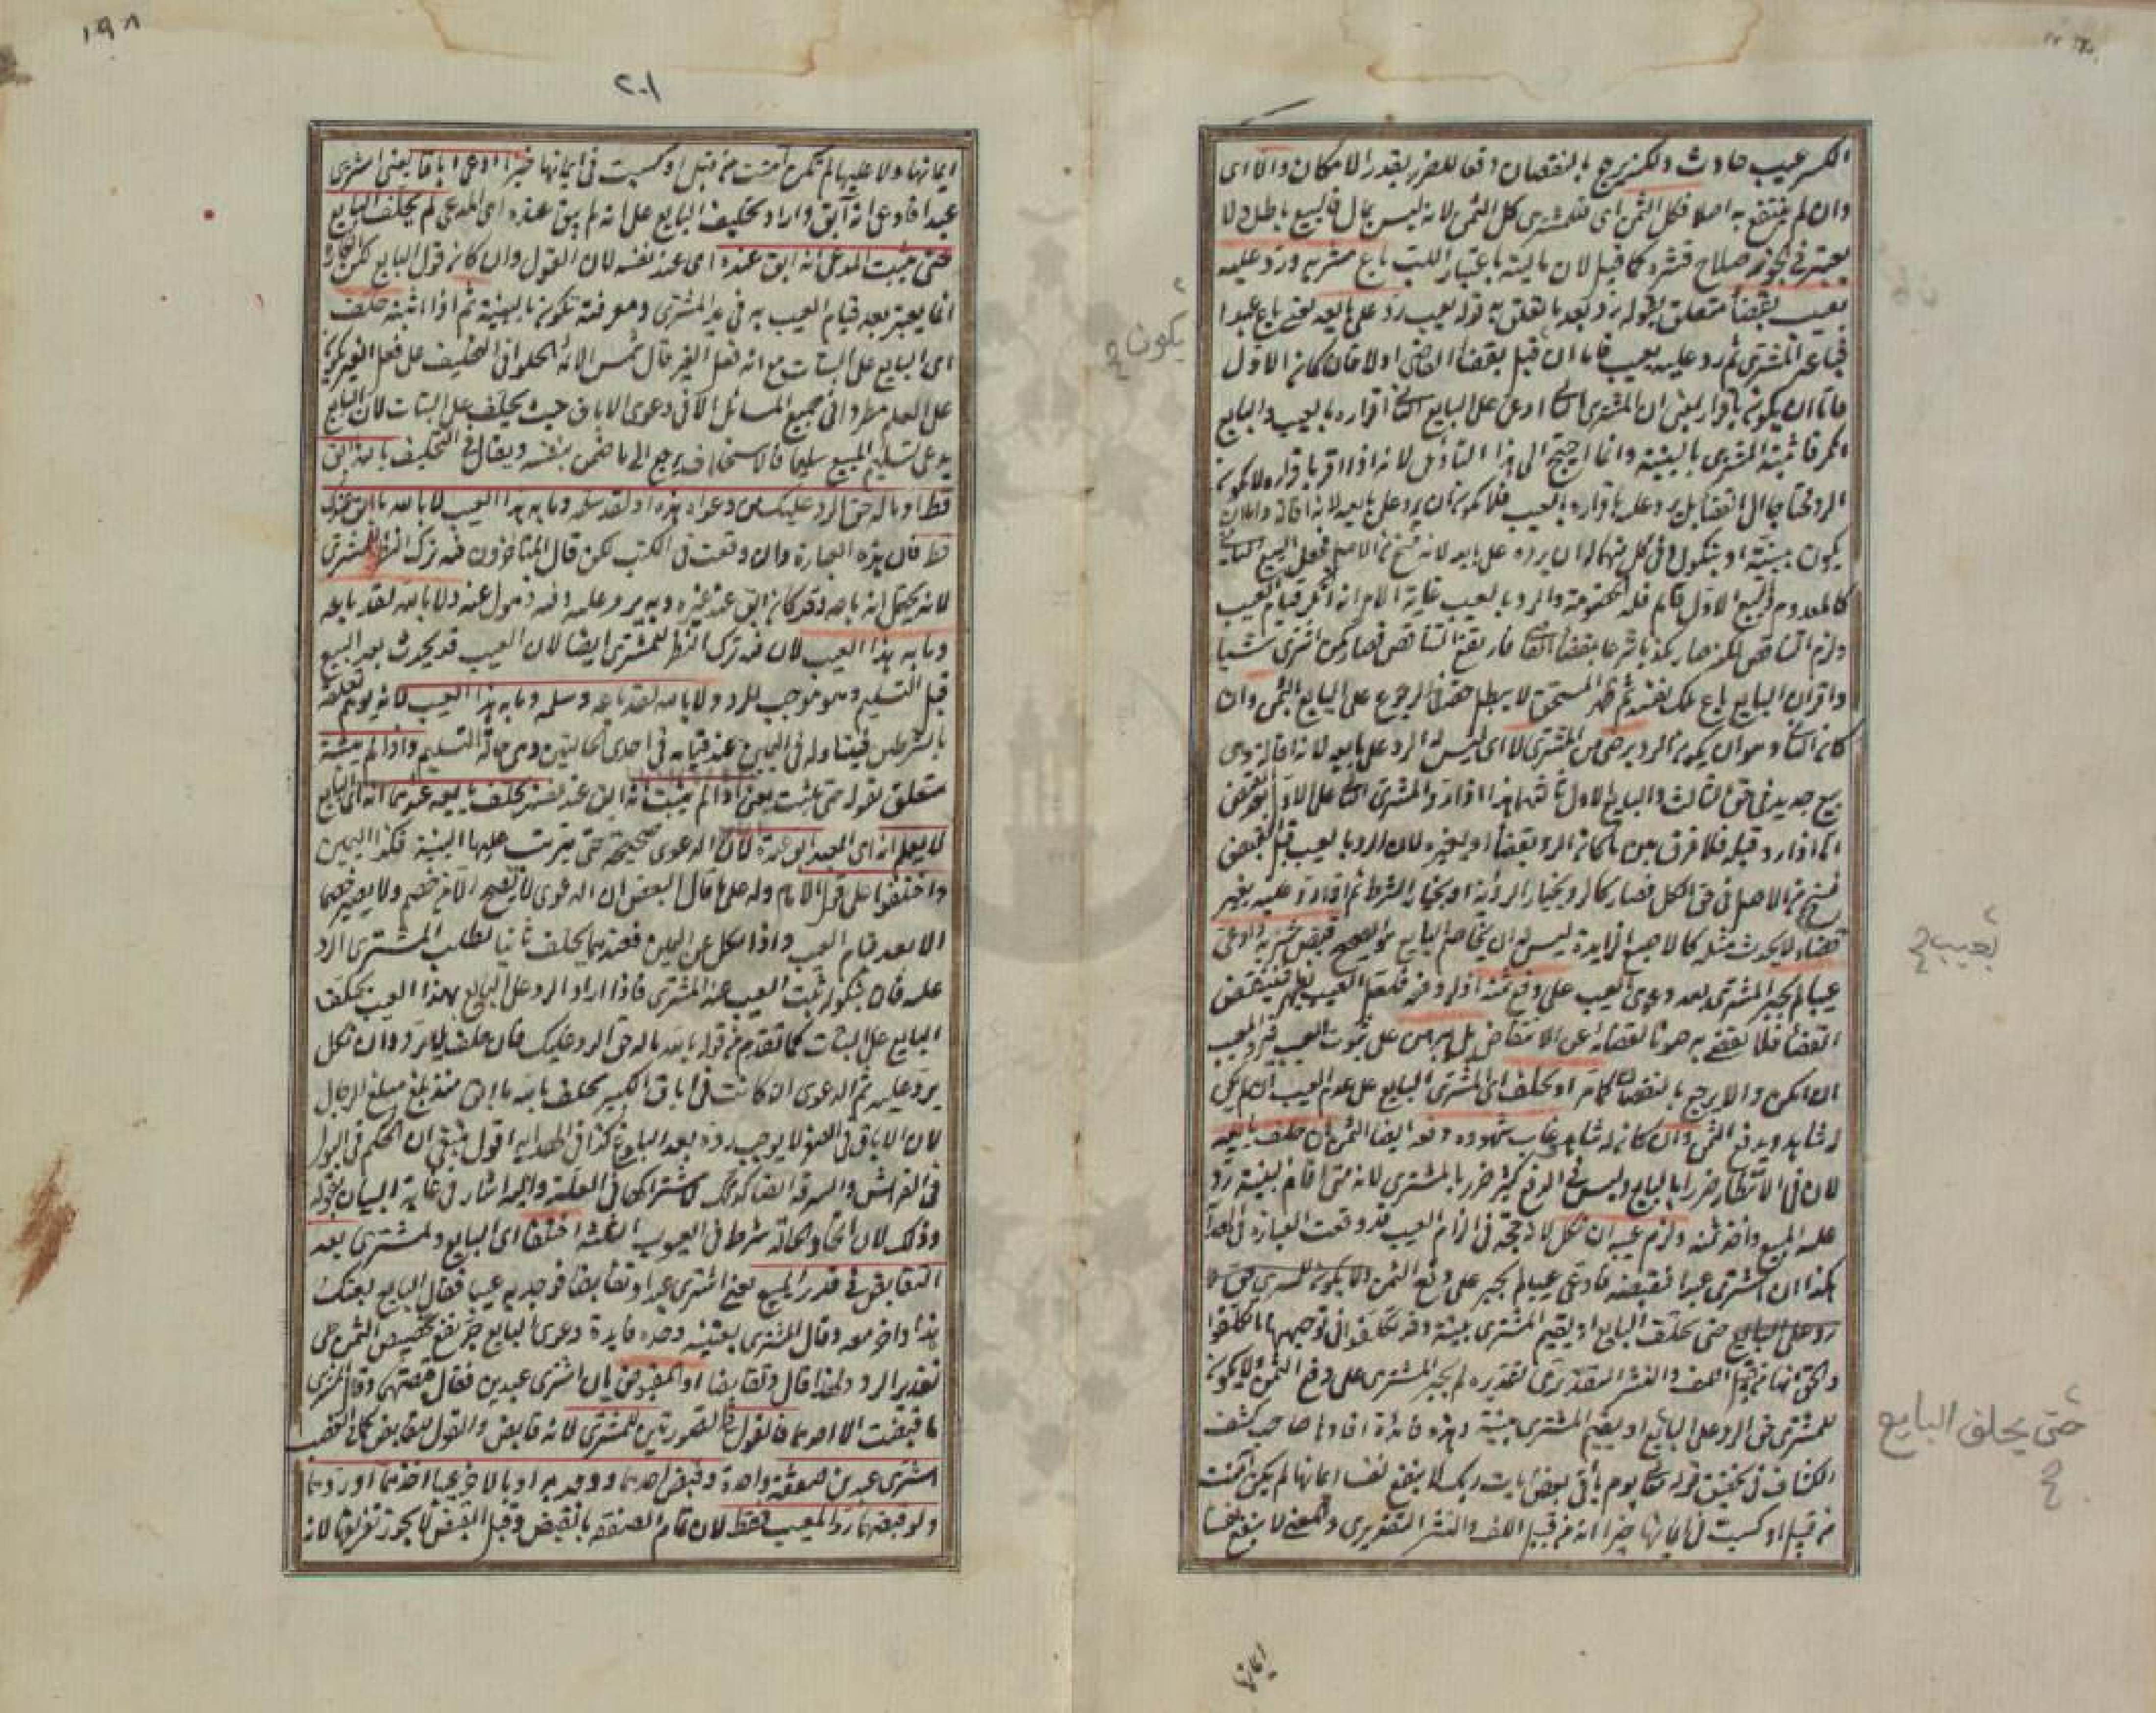 الكسر عيب حادث ولكن يرجع بالنقصان دفعا للضرر بقدر الامكان والا اى
وان لم ينتفع به اصلا فكل الثمن اى للمشترى كل الثمن لانه ليس بمال فالبيع باطل ولا
يعتبر فى الجوز صلاح قشره كما قيل لان ماليته باعتبار اللب باع مشريه ورد عليه
بعيب بقضاء متعلق بقوله رد بعد ما تعلق به قوله بعيب رد على بايعه يعنى باع عبدا
فباعه المشترى ثم رد عليه بعيب فاما ان قبل بقضاء القاضى اولا فان كان الاول
فاما ان يكون باقرار يعنى ان المشترى الثانى ادعى على البايع الثانى اقراره بالعيب والبايع
انكر فاثبته المشترى بالبينة وانما احتيج الى هذا التأويل لانه اذا اقر باقراره لا يكون
الرد محتاجا الى القضاء بل يرد عليه باقراره بالعيب فلا يكون له ان يرد على بايعه لانه اقالة واما ان
يكون ببينة او بنكول وفى كل منها له ان يرده على بايعه لانه فسخ من الاصل فجعل البيع الثانى
كالمعدوم والبيع الاول قايم فله الخصومة والرد بالعيب غاية الامر انه انكر قيام العيب
ولزم التناقض لكنه صار مكذبا شرعا بقضاء القاضى فارتفع التناقض فصار كمن اشترى شيئا
واقر ان البايع باع ملك نفسه ثم ظهر المستحق لا يبطل حقه فى الرجوع على البايع بالثمن وان
كان الثانى وهو ان يكون الرد برضى من المشترى لا اى ليس له الرد على بايعه لانه اقالة وهى
بيع جديد فى حق الثالث والبايع الاول ثالثهما هذا اذا رد المشترى الثانى على الاول بعد القبض
اما اذا رد قبله فلا فرق بين ما كان الرد بقضاء او بغيره لان الرد بالعيب قبل القبض
فسخ من الاصل فى حق الكل فصار كالرد بخيار الرؤية او بخيار الشرط ثم اذا رد عليه بغير
قضاء لا يحدث مثله كالاصبع الزايدة ليس له ان يخاصم البايع هو الصحيح قبض مشريه وادعى
عيبا لم يجبر المشترى بعد دعوى العيب على دفع ثمنه اذ لو دفعه فلعل العيب يظهر فينتقض
القضاء فلا يقضى به صونا لقضائه عن الانتقاض بل يبرهن على ثبوت العيب فيرد المعيب
ان امكن والا يرجع بالنقصان كما مر او يحلف اى المشترى البايع على عدم العيب ان لم يكن
له شاهد ويدفع الثمن وان كان له شاهد غاب شهوده دفعه ايضا الثمن ان حلف بايعه
لان فى الانتظار ضررا بالبايع وليس فى الدفع كثير ضرر بالمشترى لانه متى اقام البينة رد
عليه المبيع واخذ ثمنه ولزم عيبه ان نكل لانه حجة فى الزام العيب قد وقعت العبارة فى الهداية
هكذا ان اشترى عبدا فقبضه فادعى عيبا لم يجبر على دفع الثمن
حتى يحلف البايع او يقيم المشترى بينة وقد تكلفوا فى توجيهها ما تكلفوا
والحق انها من قبيل اللف والنشر التقديرى تقديره لم يجبر المشترى على دفع الثمن ولا يكون
للمشترى حق الرد على البائع او يقيم المشترى بينة وهذه فائدة افادها صاحب كشف
الكشاف فى تحقيق قوله تعالى يوم يأتى بعض ايات ربك لا ينفع نفسا ايمانها لم تكن آمنت
من قبل او كسبت فى ايمانها خيرا انه من قبيل اللف والنشر التقديرى والمعنى لا ينفع نفسا
ايمانها
يكون صح
بعيب صح
حتى يحلف البايع
صح
١٩٨
٢٠١
ايمانها ولا عليها لم تكن آمنت من قبل او كسبت فى ايمانها خيرا ادعى اباقا يعنى اشترى
عبدا فادعى انه آبق واراد تحليف البايع على انه لم يبق عنده اى المدعى لم يحلف البايع
حتى يثبت المدعى انه ابق عنده اى عند نفسه لان القول وان كان قول البايع لكن انكاره
انما يعتبر بعد قيام العيب به فى يد المشترى ومعرفته تكون بالبينة ثم اذا اثبته حلف
اى البايع على البتات مع انه فعل الغير قال شمس الائمة الحلوانى التحليف على فعل الغير يكون
على العلم مطردا فى جميع المسائل الا فى دعوى الاباق حيث يحلف على البتات لان البايع
يدعى تسليم المبيع سليما فالاستحلاف يرجع الى ما ضمن بنفسه ويقال فى التحليف بالله ما ابق
قط او ماله حق الرد عليك من دعواه هذه او لقد سلمه وما به هذا العيب لا بالله ما ابق عندك
قط فان هذه العبارة وان وقعت فى الكتب لكن قال المتاخرون فيه ترك النظر للمشترى
لانه يحتمل انه باعه وقد كان ابق عند غيره وبه يرد عليه وفيه ذهول عنه ولا بالله لقد باعه
وما به هذا العيب لان فيه ترك النظر للمشترى ايضا لان العيب قد يحدث بعد البيع
قبل التسليم وهو موجب للرد ولا بالله لقد باعه وسلمه وما به هذا العيب لانه يوهم تعلقه
بالشرطين فيتناوله فى اليمين عند قيامه فى احدى الحالتين وهى حالة التسليم واذا لم يثبته
متعلق بقوله حتى يثبت يعنى اذا لم يثبت انه ابق عند نفسه يحلف بايعه عندهما انه اى البايع
لا يعلم انه اى العبد ابق عنده لان الدعوى صحيحة حتى يترتب عليها البينة فكذا اليمين
واختلفوا على قول الامام وله على ما قال البعض ان الدعوى لا تصح الا من خصم ولا يصير خصما
الا بعد قيام العيب واذا نكل عن اليمين فعندهما يحلف ثانيا لطلب المشترى الرد
عليه فان بنكوله ثبت العيب عند المشترى فاذا اراد الرد على البايع بهذا العيب يحلف
البايع على البتات كما تقدم من قوله بالله ماله حق الرد عليك فان حلف لا يرد وان نكل
يرد عليه ثم الدعوى ان كانت فى اباق الكبير يحلف بالله ما ابق منذ بلغ مبلغ الرجال
لان الاباق فى الصغر لا يوجب رده بعد البلوغ كذا فى الهداية اقول ينبغى ان الحكم فى البول
فى الفراش والسرقة ايضا كذلك لاشتراكها فى العلة واليه اشار فى غاية البيان بقوله
وذلك لان اتحاد الحالة شرط فى العيوب الثلثة اختلفا اى البايع والمشترى بعد
التقابض فى قدر المبيع يعنى اشترى عبدا وتقابضا فوجد به عيبا فقال البايع بعتك
هذا واخر معه وقال المشترى بعتنيه وحده فايدة دعوى البايع تظهر
تقدير الرد ولهذا قال وتقابضا او المقبوض بان اشترى عبدين فقال قبضتهما وقال المشترى
ما قبضت الا احدهما فالقول فى الصورتين للمشترى لانه قابض والقول للقابض كما فى الغصب
اشترى عبدين صفقة واحدة وقبض احدهما ووجد به او بالاخر عيبا اخذهما او ردهما
ولو قبضهما رد المعيب فقط لان تمام الصفقة بالقبض وقبل القبض لا يجوز تفريقها لانه